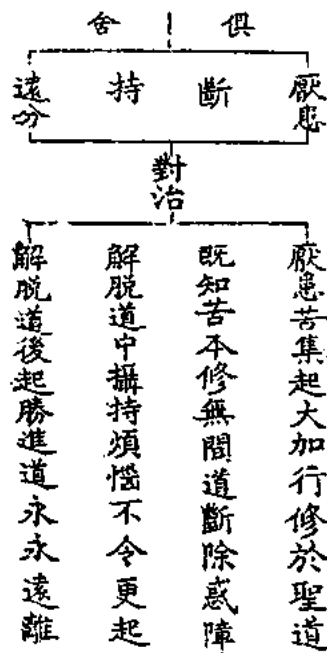 俱舍
厭患
斷
持
遠分
對治
厭患苦集起大加行修於聖道
既知苦本修無間道斷除惑障
解脱道中攝持煩惱不令更起
解脱道後起勝進道永永遠離